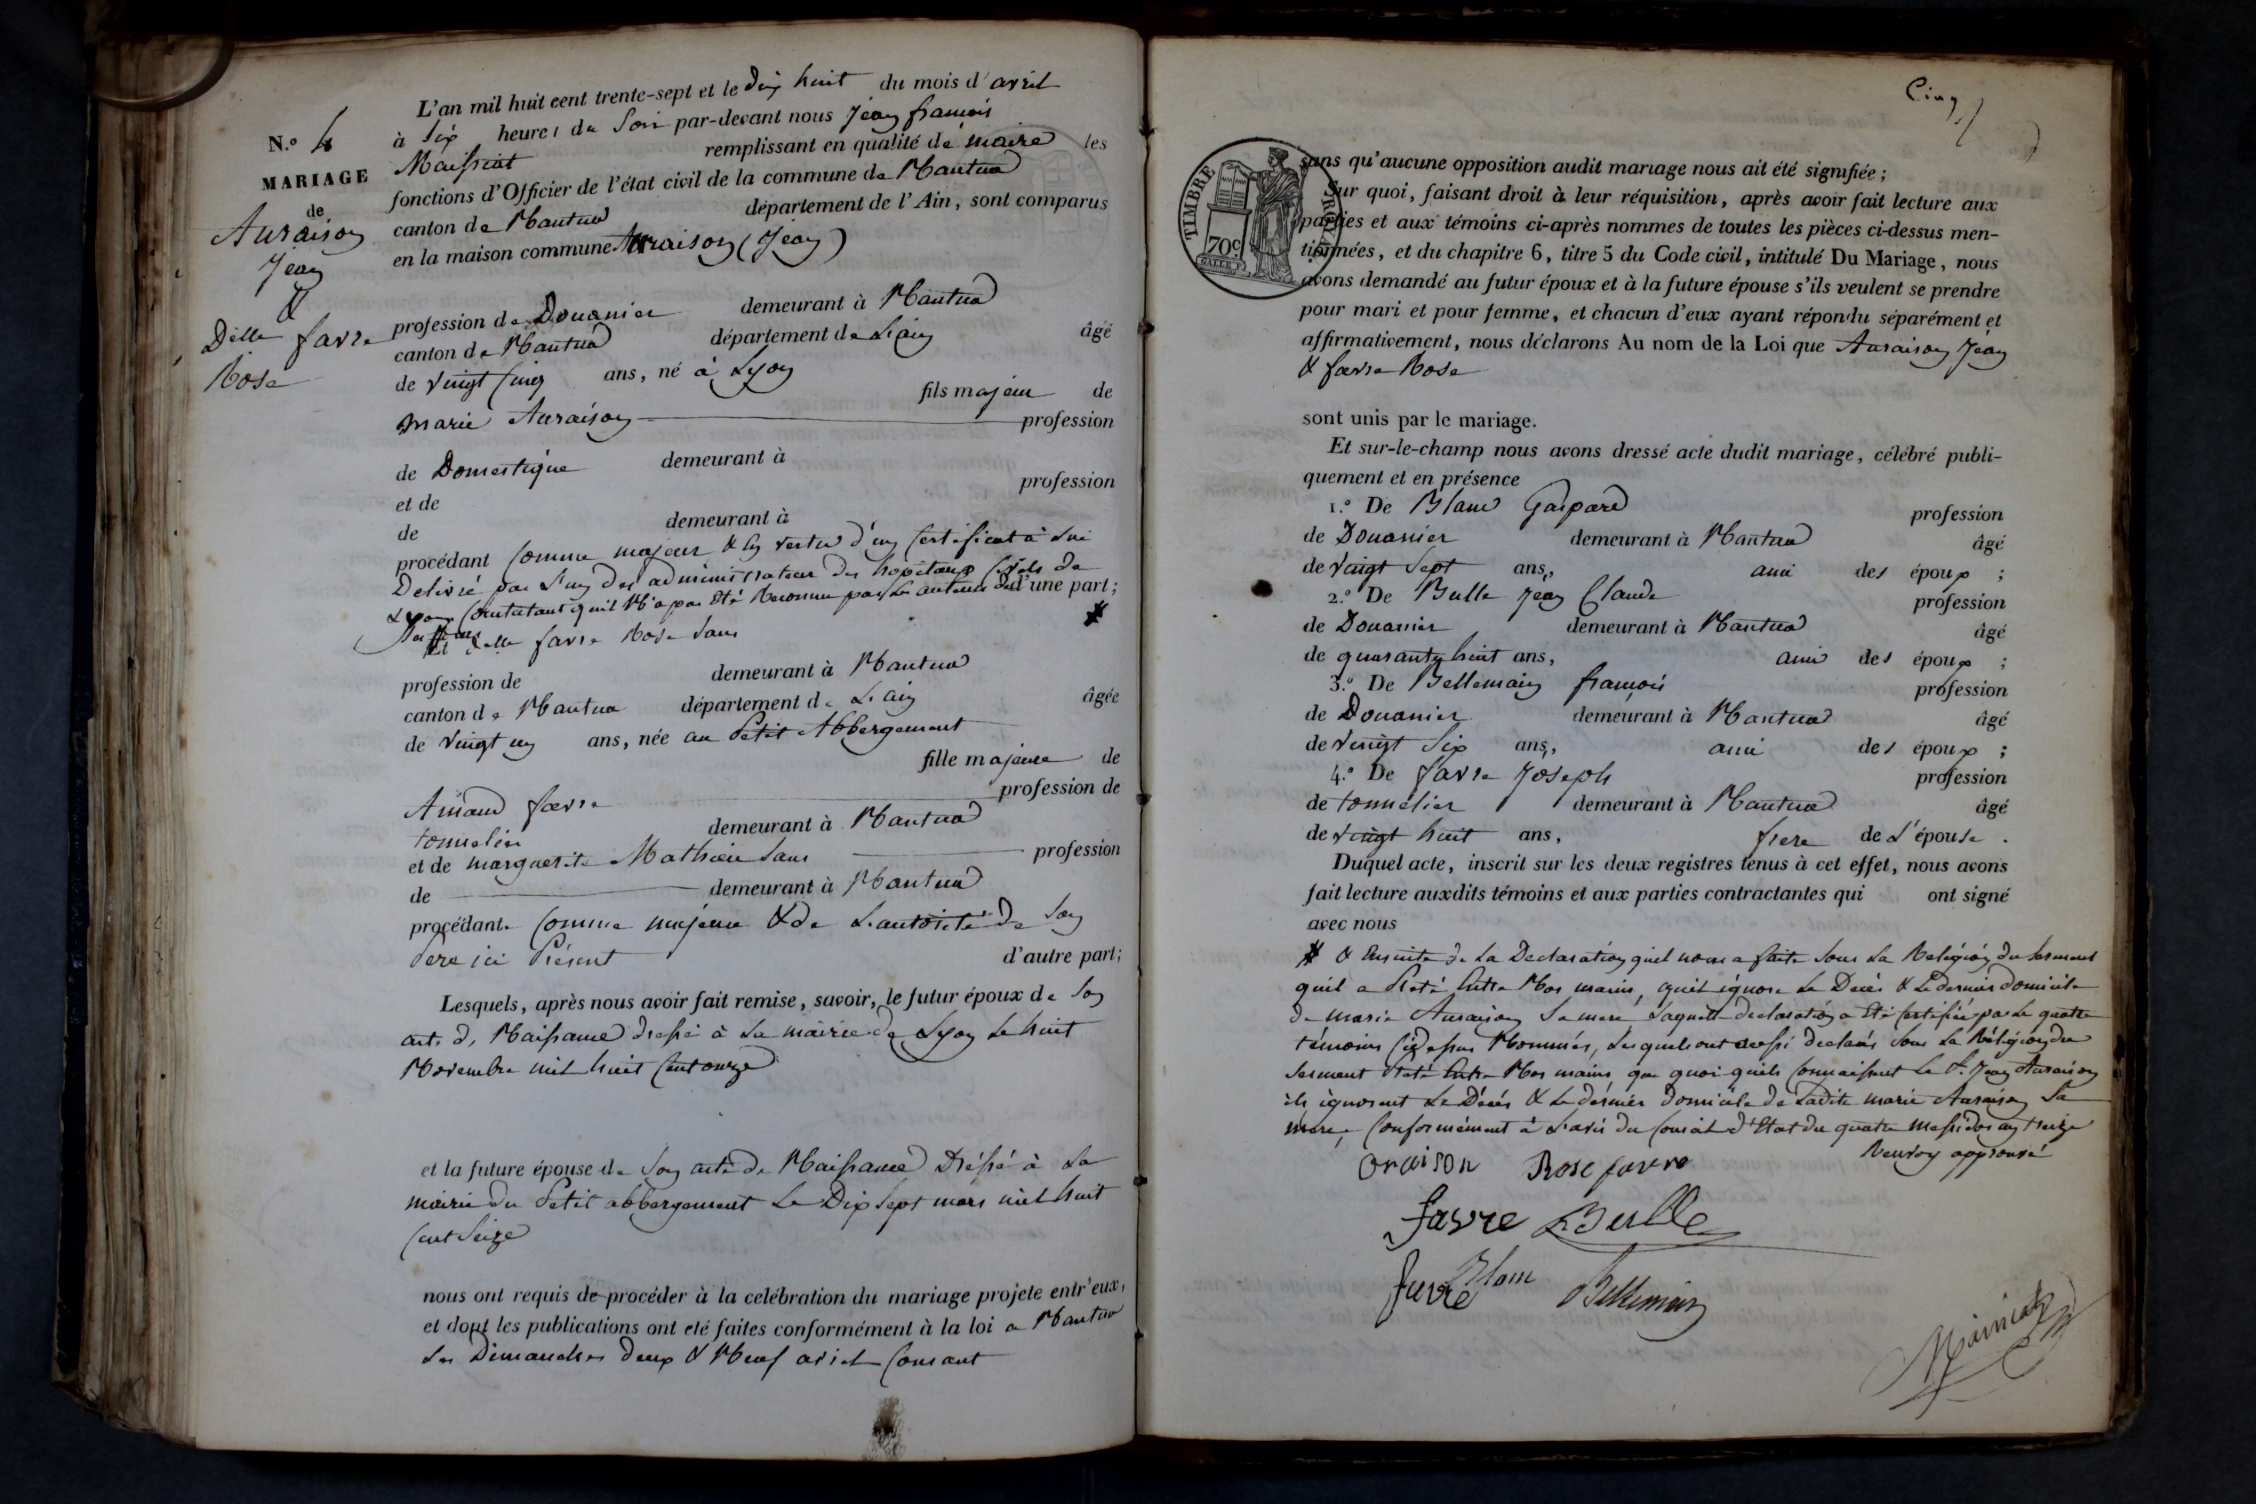 L'an mil huit cent trente-sept et le dix huit du mois d'avril
N.o 4
à six heures du Soir par-devant nous Jean françois
Maissiat remplissant en qualité de maire les
MARIAGE
fonctions d'Officier de l'état civil de la commune de Nantua
de
canton de Nantua département de l'Ain, sont comparus
Auraison
en la maison commune Auraison (Jean)
Jean
&
profession de Douanier demeurant à Nantua
Délle favre
canton de Nantua département de L'ain âgé
Rose
de vingt Cinq ans, né à Lyon
fils majeur de
marie Auraison profession
de Domestique demeurant à
et de profession
de demeurant à
procédant Comme majeur & En vertu d'un Certificat à Lui
Delivré par L'un des administrateur des hopitaux Civils de
Lyon Constatant quil N'a pas Eté Reconnu par Les auteurs d'une part;
Et delle favre Rose Sans
profession de demeurant à Nantua
canton de Nantua département de L'ain âgée
de vingt un ans, née au Petit Abbergement
fille majeure de
Amand favre profession de
tonnelier demeurant à Nantua
et de marguerite Mathieu Sans profession
de demeurant à Nantua
procédant Comme majeure & de L'autorité de Son
Pere ici Présent d'autre part;
Lesquels, après nous avoir fait remise, savoir, le futur époux de Son
acte de Naissance dressé à La mairie de Lyon Le huit
Novembre mil huit Cent onze
et la future épouse de Son acte de Naissance Dréssé à La
mairie du Petit abbergement Le Dix Sept mars mil huit
Cent Seize
nous ont requis de procéder à la celébration du mariage projete entr'eux,
et dont les publications ont eté faites conformément à la loi a Nantua
Les Dimanches deux & Neuf avril Courant
Cinq
TIMBRE ROYAL
70c
sans qu'aucune opposition audit mariage nous ait été signifiée;
Sur quoi, faisant droit à leur réquisition, après avoir fait lecture aux
parties et aux témoins ci-après nommes de toutes les pièces ci-dessus men-
tionnées, et du chapitre 6, titre 5 du Code civil, intitulé Du Mariage, nous
avons demandé au futur époux et à la future épouse s'ils veulent se prendre
pour mari et pour femme, et chacun d'eux ayant répondu séparément et
affirmativement, nous déclarons Au nom de la Loi que Auraison Jean
& favre Rose
sont unis par le mariage.
Et sur-le-champ nous avons dressé acte dudit mariage, célébré publi-
quement et en présence
1.o De Blanc Gaspard profession
de Douanier demeurant à Nantua âgé
de vingt Sept ans, ami des époux;
2.o De Bulle Jean Claude profession
de Douanier demeurant à Nantua âgé
de quarante huit ans, ami des époux;
3.o De Bellemain françois profession
de Douanier demeurant à Nantua âgé
de vingt Six ans, ami des époux;
4.o De favre Joseph profession
de tonnelier demeurant à Nantua âgé
de vingt huit ans, frere de L'épouse.
Duquel acte, inscrit sur les deux registres tenus à cet effet, nous avons
fait lecture auxdits témoins et aux parties contractantes qui ont signé
avec nous
& Ensuite de La Declaration quil nous a faite Sous La Religion du serment
quil a Preté Entre Nos mains, quil ignore Le Décés & Le dernier domicile
de marie Auraison Sa mere Laquelle declaration a Eté Certifiée par Le quatre
témoins Cidessus Nommés, Lesquels ont aussi declarés Sous La Réligion du
serment Preté Entre Nos mains, que quoi quils Connaissent Le S.r Jean Auraison
ils ignorent Le Décés & Le dernier domicile de Ladite marie Auraison Sa
mere, Conformément à L'avis du Conseil d'Etat du quatre Messidor an treize
Renvoy approuvé
Oraison Rose favre
favre Bulle
Blanc
favre Bellemain
Maissiat